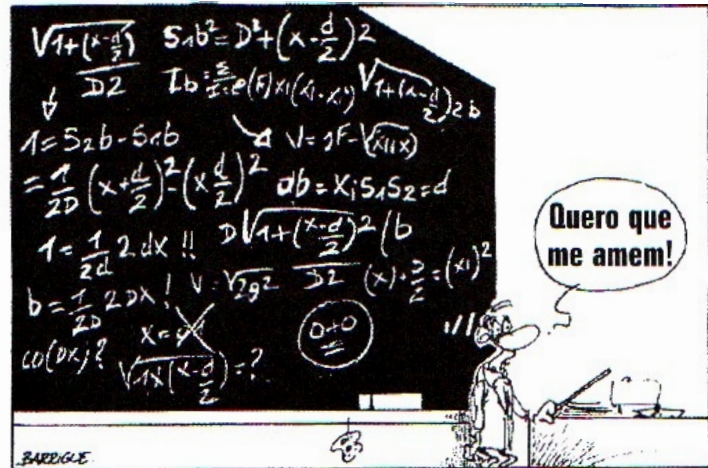 √1+(x-d/2) / D2
S₁b²=D²+(x-d/2)2
Ib=
√1+(x-d/2)2b
1=S2b-S1b
V=gF-√(x11x)
=1/2D(x+d/2)²-(x d/2)²
ab=XiS1S2=d
1=1/2d 2dx !!
D√1+(x-d/2)2(b / D2
b=1/2D 2DX!
V=√2g2
(x)+D/2=(x1)²
X=
0+0
co(DX)?
√1x(x-d/2)=?
Quero que
me amem!
BARRIGUE